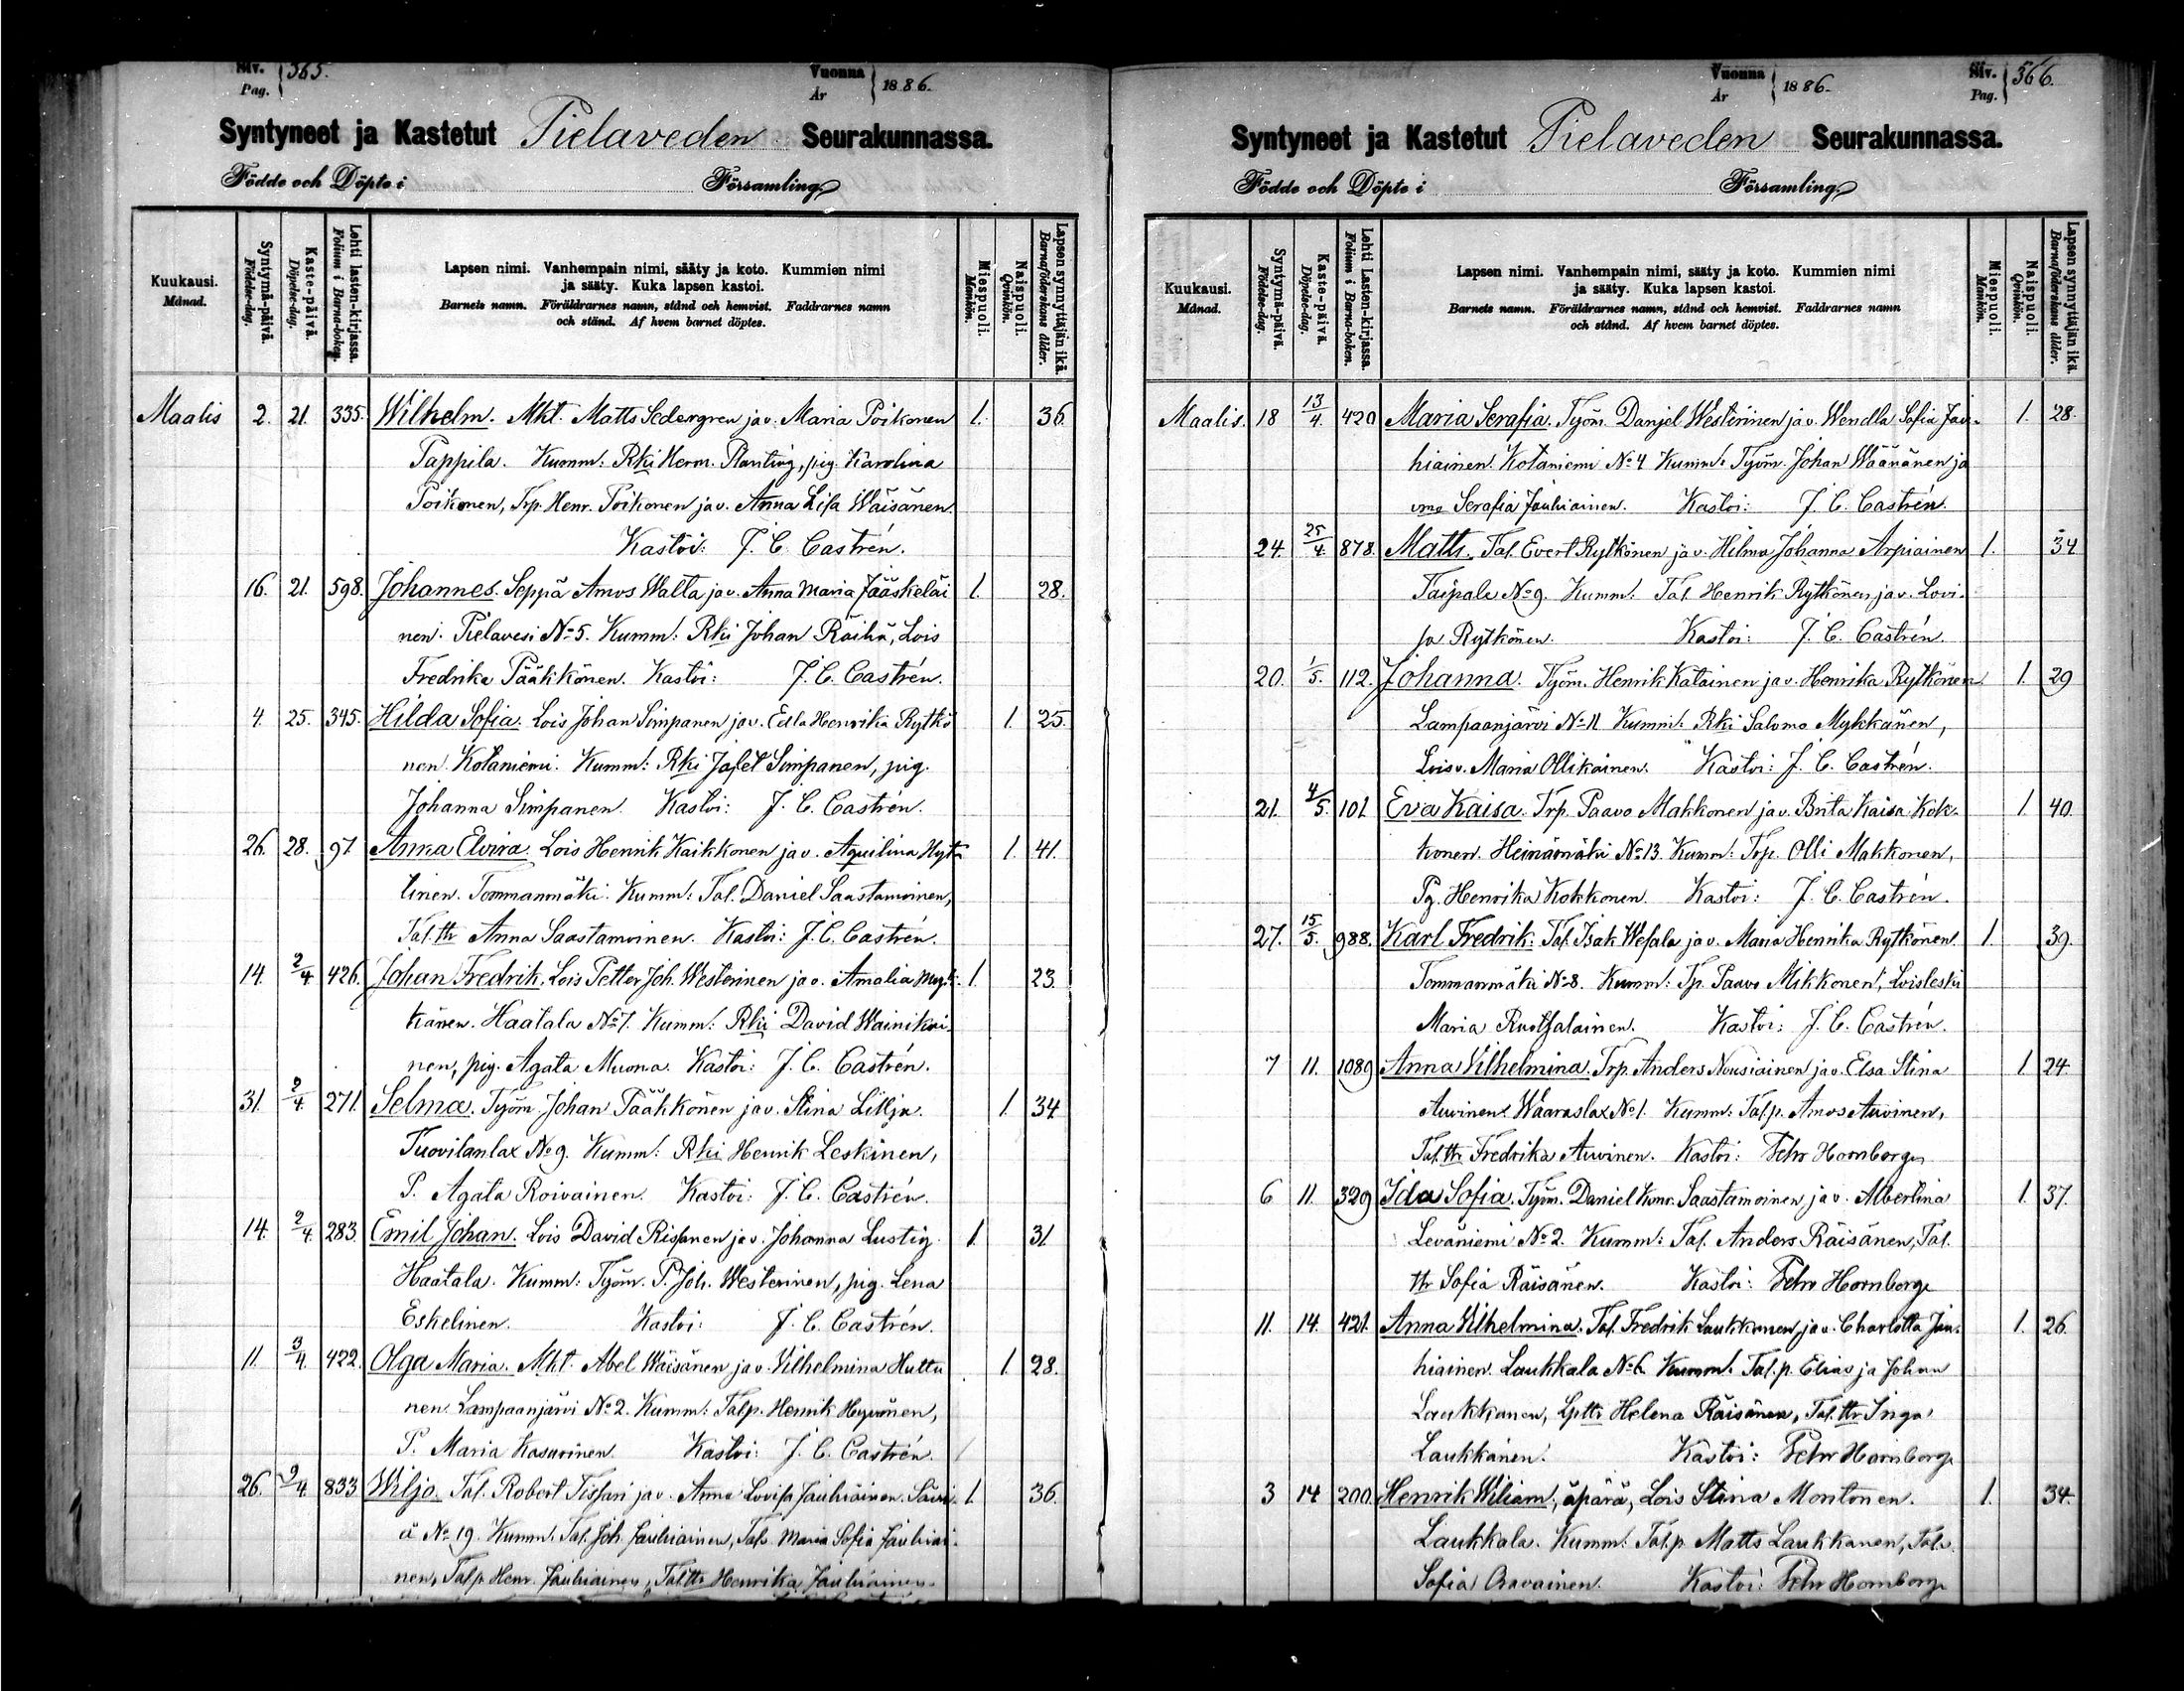 Siv. Pag. 365.
Vuonna År 1886.
Syntyneet ja Kastetut Pielaveden Seurakunnassa.
Födde och Döpte i Församling.
Kuukausi. Månad.
Syntymä-päivä. Födelse-dag.
Kaste-päivä. Döpelse-dag.
Lehti lasten-kirjassa. Folium i Barna-boken.
Lapsen nimi. Vanhempain nimi, sääty ja koto. Kummien nimi
ja sääty. Kuka lapsen kastoi.
Barnets namn. Föräldrarnes namn, stånd och hemvist. Faddrarnes namn
och stånd. Af hvem barnet döptes.
Miespuoli. Mankön.
Naispuoli. Qvinkön.
Lapsen synnyttäjän ikä. Barnaföderskans ålder.
Maalis 2. 21. 335. Wilhelm. Mkt. Matts Sedergren ja v. Maria Poikonen 1. 36.
Pappila. Kumm: Rki Herm. Planting, pig. Karolina
Poikonen, Trp. Henr. Poikonen ja v. Anna Lisa Wäisänen.
Kastoi: J. C. Castrén.
16. 21. 598. Johannes. Seppä Amos Walta ja v. Anna Maria Jääskeläi 1. 28.
nen. Pielavesi No 5. Kumm: Rki Johan Räihä, Lois
Fredrika Pääkkönen. Kastoi: J. C. Castrén.
4. 25. 345. Hilda Sofia. Lois Johan Simpanen ja v. Edla Henrika Rytkö 1. 25.
nen. Kotaniemi. Kumm: Rki Jafet Simpanen, pig.
Johanna Simpanen. Kastoi: J. C. Castrén.
26. 28. 97 Anna Elvira. Lois Henrik Kaikkonen ja v. Aquilina Hytö 1. 41.
linen. Tommanmäki. Kumm: Tal. Daniel Saastamoinen,
Tal.ttr Anna Saastamoinen. Kastoi: J. C. Castrén.
14. 2/4 426. Johan Fredrik. Lois Petter Joh. Westerinen ja v. Amalia Myk- 1. 23.
känen. Haatala No 7. Kumm: Rki David Wainikai
nen, pig. Agata Muona. Kastoi: J. C. Castrén.
31. 2/4 271. Selma. Työm. Johan Pääkkönen ja v. Stina Lillja. 1. 34
Tuovilanlax No 9. Kumm: Rki Henrik Leskinen,
P. Agata Roivainen. Kastoi: J. C. Castrén.
14. 2/4 283. Emil Johan. Lois David Rissanen ja v. Johanna Lustig 1. 31
Haatala. Kumm: Työm. P. Joh. Westerinen, pig. Lena
Eskelinen. Kastoi: J. C. Castrén.
11. 3/4 422. Olga Maria. Mkt. Abel Wäisänen ja v. Vilhelmina Huttu 1. 28.
nen. Lampaanjärvi No 2. Kumm: Talp. Henrik Hyvönen,
P. Maria Kasurinen. Kastoi: J. C. Castrén.
26. 9/4 833 Wiljo. Tal. Robert Tissari ja v. Anna Lovisa Jauhiainen. Sävi- 1. 36.
ä No 19. Kumm: Tal. Joh. Jauhiainen, Talv. Maria Sofia Jauhiai-
nen, Talp. Henr. Jauhiainen, Tal.ttr Henrika Jauhiainen.
Vuonna År 1886.
Siv. Pag. 366.
Syntyneet ja Kastetut Pielaveden Seurakunnassa.
Födde och Döpte i Församling.
Kuukausi. Månad.
Syntymä-päivä. Födelse-dag.
Kaste-päivä. Döpelse-dag.
Lehti lasten-kirjassa. Folium i Barna-boken.
Lapsen nimi. Vanhempain nimi, sääty ja koto. Kummien nimi
ja sääty. Kuka lapsen kastoi.
Barnets namn. Föräldrarnes namn, stånd och hemvist. Faddrarnes namn
och stånd. Af hvem barnet döptes.
Miespuoli. Mankön.
Naispuoli. Qvinkön.
Lapsen synnyttäjän ikä. Barnaföderskans ålder.
Maalis. 18 13/4. 420 Maria Serafia. Työm. Danjel Westerinen ja v. Wendla Sofia Jau- 1. 28.
hiainen. Kotaniemi No 4 Kumm: Työm. Johan Wäänänen ja
vmo Serafia Jauhiainen. Kastoi: J. C. Castrén.
24. 25/4. 878. Matts. Tal. Evert Rytkönen ja v. Hilma Johanna Arpiainen 1. 34
Taipale No 9. Kumm: Tal. Henrik Rytkönen ja v. Lovi-
sa Rytkönen. Kastoi: J. C. Castrén.
20. 1/5. 112. Johanna. Työm. Henrik Katainen ja v. Henrika Rytkönen 1. 29
Lampaanjärvi No 11 Kumm: Rki Salomo Mykkänen,
Loisv. Maria Ollikainen. Kastoi: J. C. Castrén.
21. 4/5. 101. Eva Kaisa. Trp. Paavo Makkonen ja v. Brita Kaisa Kok- 1. 40.
konen. Heinämäki No 13. Kumm: Trp. Olli Makkonen,
Pg. Henrika Kokkonen. Kastoi: J. C. Castrén.
27. 15/5. 988. Karl Fredrik. Tal. Isak Wesala ja v. Maria Henrika Rytkönen. 1. 39.
Tommanmäki No 8. Kumm: Tp. Paavo Mikkonen, Loisleski
Maria Ruotsalainen. Kastoi: J. C. Castrén.
7 11. 1089 Anna Vilhelmina. Trp. Anders Nousiainen ja v. Elsa Stina 1 24
Auvinen. Waaraslax No 1. Kumm: Tal.p. Amos Auvinen,
Tal.ttr Fredrika Auvinen. Kastoi: Fehr Hornborg
6 11. 329 Ida Sofia. Työm. Daniel Konr. Saastamoinen ja v. Albertina 1. 37.
Leväniemi No 2. Kumm: Tal. Anders Räisänen, Tal.
ttr Sofia Räisänen. Kastoi: Fehr Hornborg
11. 14. 421. Anna Vilhelmina. Tal. Fredrik Laukkanen ja v. Charlotta Jau- 1. 26.
hiainen. Laukkala No 6. Kumm: Tal.p. Elias ja Johan
Laukkanen, Lpttr Helena Räisänen, Tal.ttr Inga
Laukkanen. Kastoi: Fehr Hornborg
3 14 200. Henrik Wiliam, äpärä, Lois Stina Montonen. 1. 34.
Laukkala. Kumm: Tal.p Matts Laukkanen, Tal.v.
Sofia Oravainen. Kastoi: Fehr Hornborg